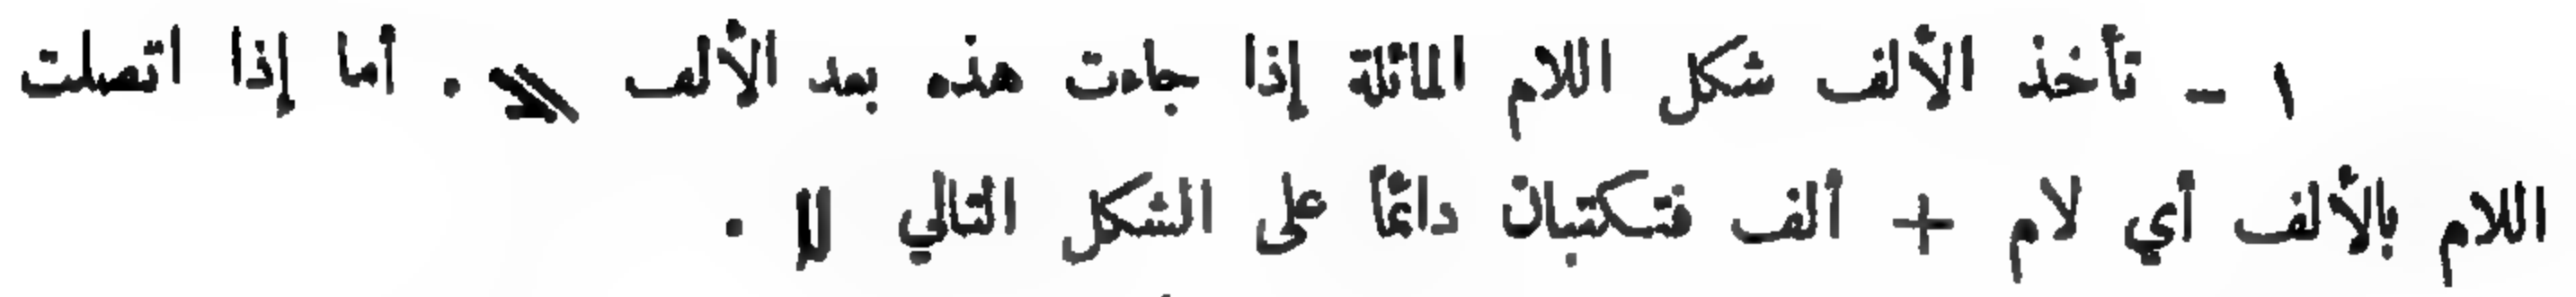 ١ - تأخذ الألف شكل اللام المائلة إذا جاءت هذه بعد الألف . أما إذا اتصلت
اللام بالألف أي لام + ألف فتكتبان دائماً على الشكل التالي .